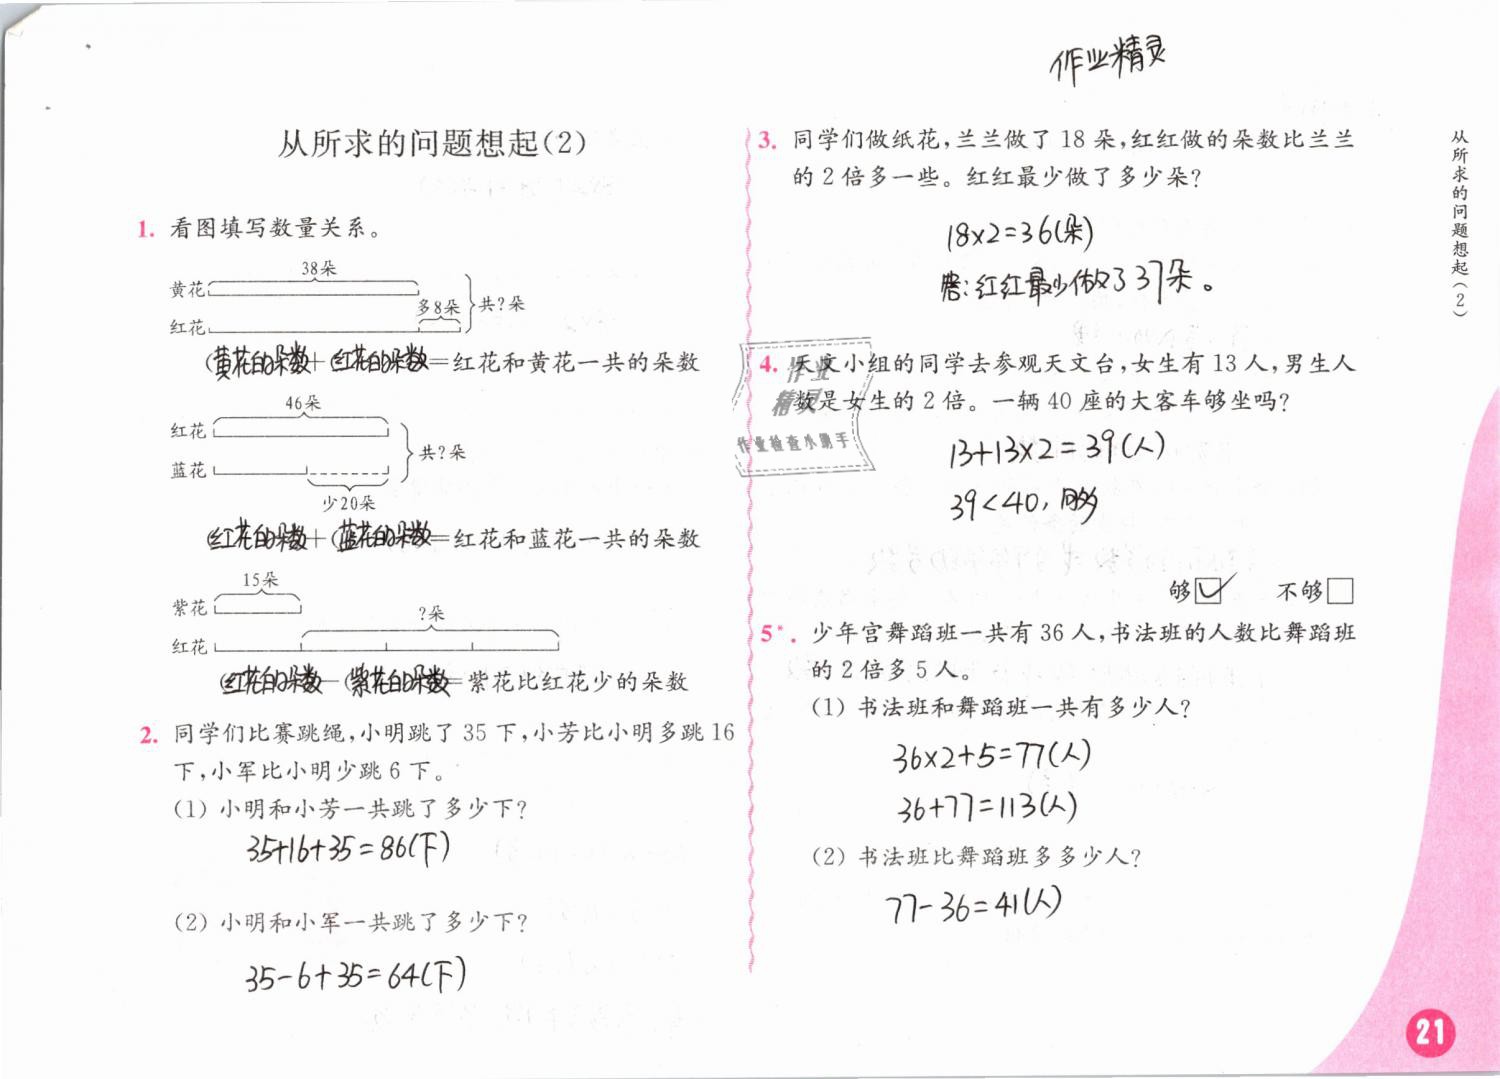 作业精灵
从所求的问题想起(2)
1. 看图填写数量关系。
38朵
黄花
多8朵
共?朵
红花
(黄花的朵数)+(红花的朵数)=红花和黄花一共的朵数
46朵
红花
共?朵
蓝花
少20朵
(红花的朵数)+(蓝花的朵数)=红花和蓝花一共的朵数
15朵
紫花
?朵
红花
(红花的朵数)-(紫花的朵数)=紫花比红花少的朵数
2. 同学们比赛跳绳,小明跳了 35 下,小芳比小明多跳 16
下,小军比小明少跳 6 下。
(1) 小明和小芳一共跳了多少下?
35+16+35=86(下)
(2) 小明和小军一共跳了多少下?
35-6+35=64(下)
3. 同学们做纸花,兰兰做了 18 朵,红红做的朵数比兰兰
的 2 倍多一些。红红最少做了多少朵?
18×2=36(朵)
答:红红最少做了37朵。
4. 天文小组的同学去参观天文台,女生有 13 人,男生人
数是女生的 2 倍。一辆 40 座的大客车够坐吗?
作业
精灵
作业检查小助手
13+13×2=39(人)
39<40,够
够☑ 不够□
5*. 少年宫舞蹈班一共有 36 人,书法班的人数比舞蹈班
的 2 倍多 5 人。
(1) 书法班和舞蹈班一共有多少人?
36×2+5=77(人)
36+77=113(人)
(2) 书法班比舞蹈班多多少人?
77-36=41(人)
从所求的问题想起(2)
21